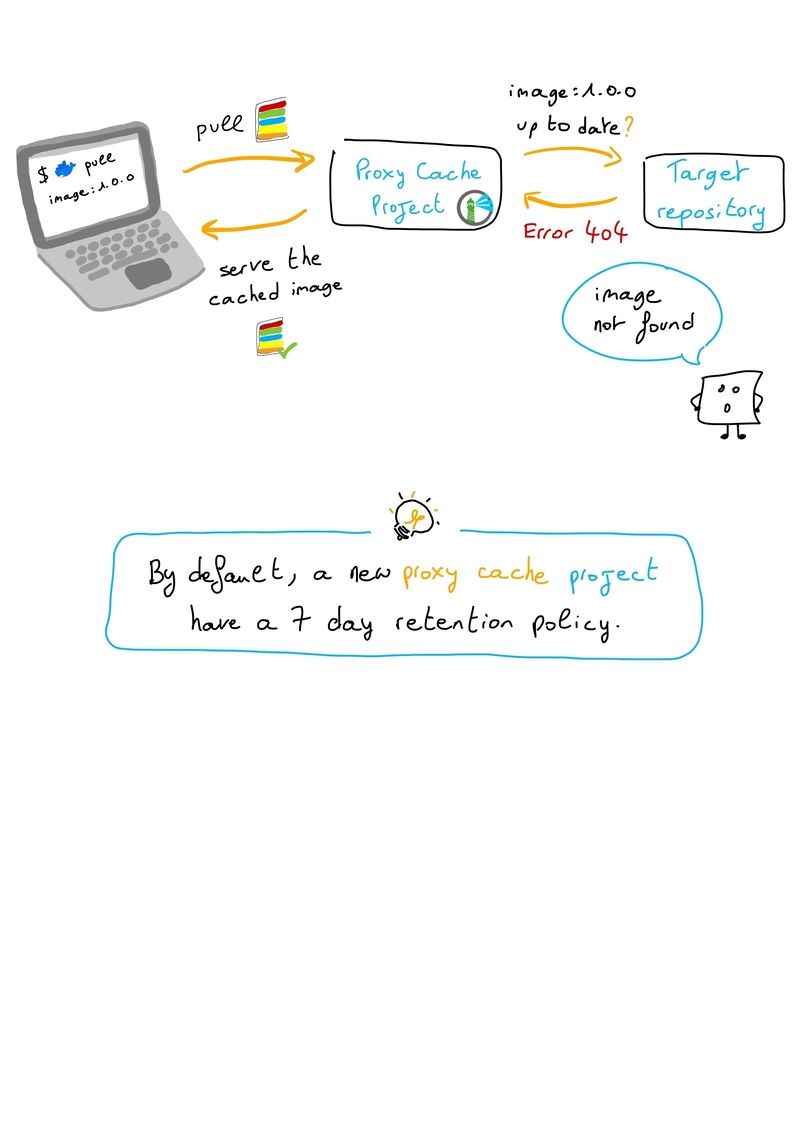 $ pull
image:1.0.0
pull
serve the
cached image
Proxy Cache
Project
image:1.0.0
up to date?
Error 404
Target
repository
image
not found
By default, a new proxy cache project
have a 7 day retention policy.